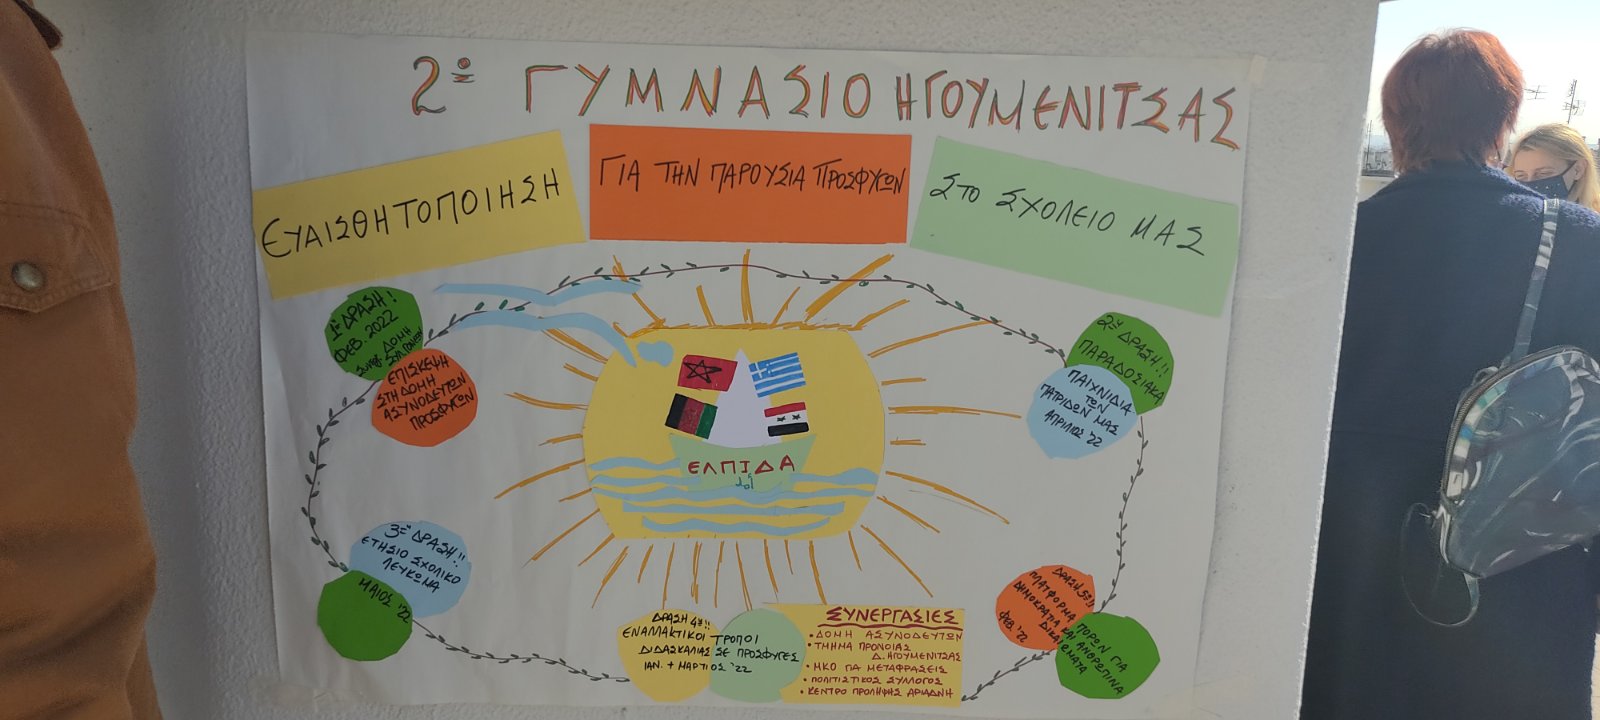 2ο ΓΥΜΝΑΣΙΟ ΗΓΟΥΜΕΝΙΤΣΑΣ
ΕΥΑΙΣΘΗΤΟΠΟΙΗΣΗ
ΓΙΑ ΤΗΝ ΠΑΡΟΥΣΙΑ ΠΡΟΣΦΥΓΩΝ
ΣΤΟ ΣΧΟΛΕΙΟ ΜΑΣ
1η ΔΡΑΣΗ!
ΦΕΒ. 2022
ΔΟΜΗ
ΕΠΙΣΚΕΨΗ
ΣΤΗ ΔΟΜΗ
ΑΣΥΝΟΔΕΥΤΩΝ
ΠΡΟΣΦΥΓΩΝ
2η ΔΡΑΣΗ!!
ΠΑΡΑΔΟΣΙΑΚΑ
ΠΑΙΧΝΙΔΙΑ
ΤΩΝ
ΠΑΤΡΙΔΩΝ ΜΑΣ
ΑΠΡΙΛΙΟΣ '22
ΕΛΠΙΔΑ
3η ΔΡΑΣΗ!!
ΕΤΗΣΙΟ ΣΧΟΛΙΚΟ
ΛΕΥΚΩΜΑ
ΜΑΙΟΣ '22
ΔΡΑΣΗ 4η!!
ΕΝΑΛΛΑΚΤΙΚΟΙ ΤΡΟΠΟΙ
ΔΙΔΑΣΚΑΛΙΑΣ ΣΕ ΠΡΟΣΦΥΓΕΣ
ΙΑΝ. + ΜΑΡΤΙΟΣ '22
ΣΥΝΕΡΓΑΣΙΕΣ
• ΔΟΜΗ ΑΣΥΝΟΔΕΥΤΩΝ
• ΤΜΗΜΑ ΠΡΟΝΟΙΑΣ
Δ. ΗΓΟΥΜΕΝΙΤΣΑΣ
• ΜΚΟ ΓΙΑ ΜΕΤΑΦΡΑΣΕΙΣ
• ΠΟΛΙΤΙΣΤΙΚΟΣ ΣΥΛΛΟΓΟΣ
• ΚΕΝΤΡΟ ΠΡΟΛΗΨΗΣ ΑΡΙΑΔΝΗ
ΔΡΑΣΗ 5η!!
ΠΛΑΤΦΟΡΜΑ ΠΟΡΩΝ ΓΙΑ
ΔΗΜΟΚΡΑΤΙΑ ΚΑΙ ΑΝΘΡΩΠΙΝΑ
ΔΙΚΑΙΩΜΑΤΑ
ΦΕΒ. '22